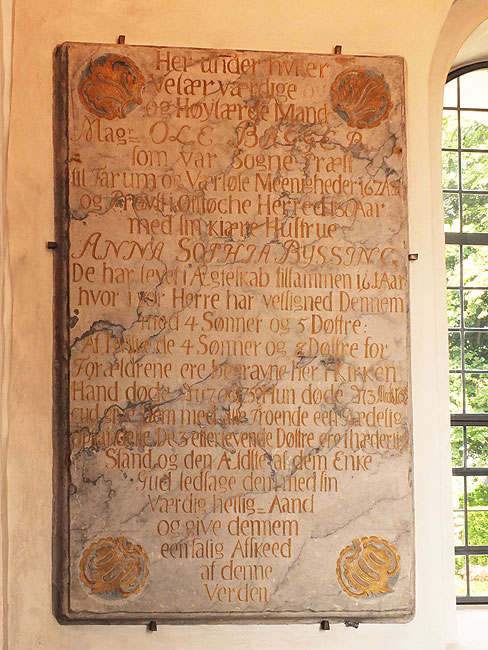 Her under hviler
velærværdige og
og Høylærde Mand
Mag= OLE BAGGER
som var Sogne Præst
til Farum og Værløse Meenigheder
og Provst i Ølstøche Herred Aar
med sin kiære Hustrue
ANNA SOPHIA BYSSING
De har levet i Ægteskab tilsammen Aar
hvor i vor Herre har velsigned Dennem
med 4 Sønner og 5 Døttre:
Af 4 Sønner og Døttre for
Forældrene ere begravne her i Kirken
Hand døde Hun døde
Gud dem med alle Troende een glædelig
De 3 efterlevende Døttre ere i hæderlig
Stand og den Ældste af dem Enke
Gud ledsage dem med sin
Værdig hellig= Aand
og give dennem
een salig Afskeed
af denne
Verden